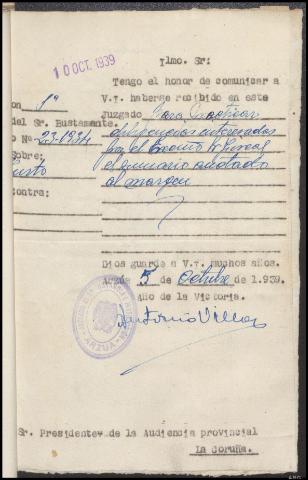 10 OCT. 1939
Ilmo. Sr:
Tengo el honor de comunicar a
on 1ª V.I. haberse recibido en este
del Sr. Bustamante. Juzgado para practicar
o Nº 23-1934 diligencias interesadas
Sobre: por el
el sumario anotado
contra: al margen
Dios guarde a V.I. muchos años.
Arzúa 5 de Octubre de 1.939.
Año de la Victoria.
Antonio Villar
ARZUA
Sr. Presidente de la Audiencia provincial
La Coruña.